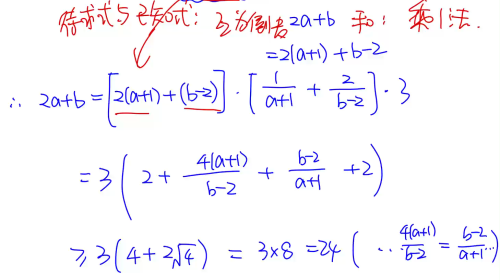 待求式与已知式：互为倒数 2a+b 和： 乘1法.
=2(a+1)+b-2
∴ 2a+b=[2(a+1)+(b-2)]·[1/(a+1) + 2/(b-2)]·3
=3(2+ 4(a+1)/(b-2) + (b-2)/(a+1) +2)
≥3(4+2√4) = 3×8 =24 ( ∵ 4(a+1)/(b-2) = (b-2)/(a+1) ...)